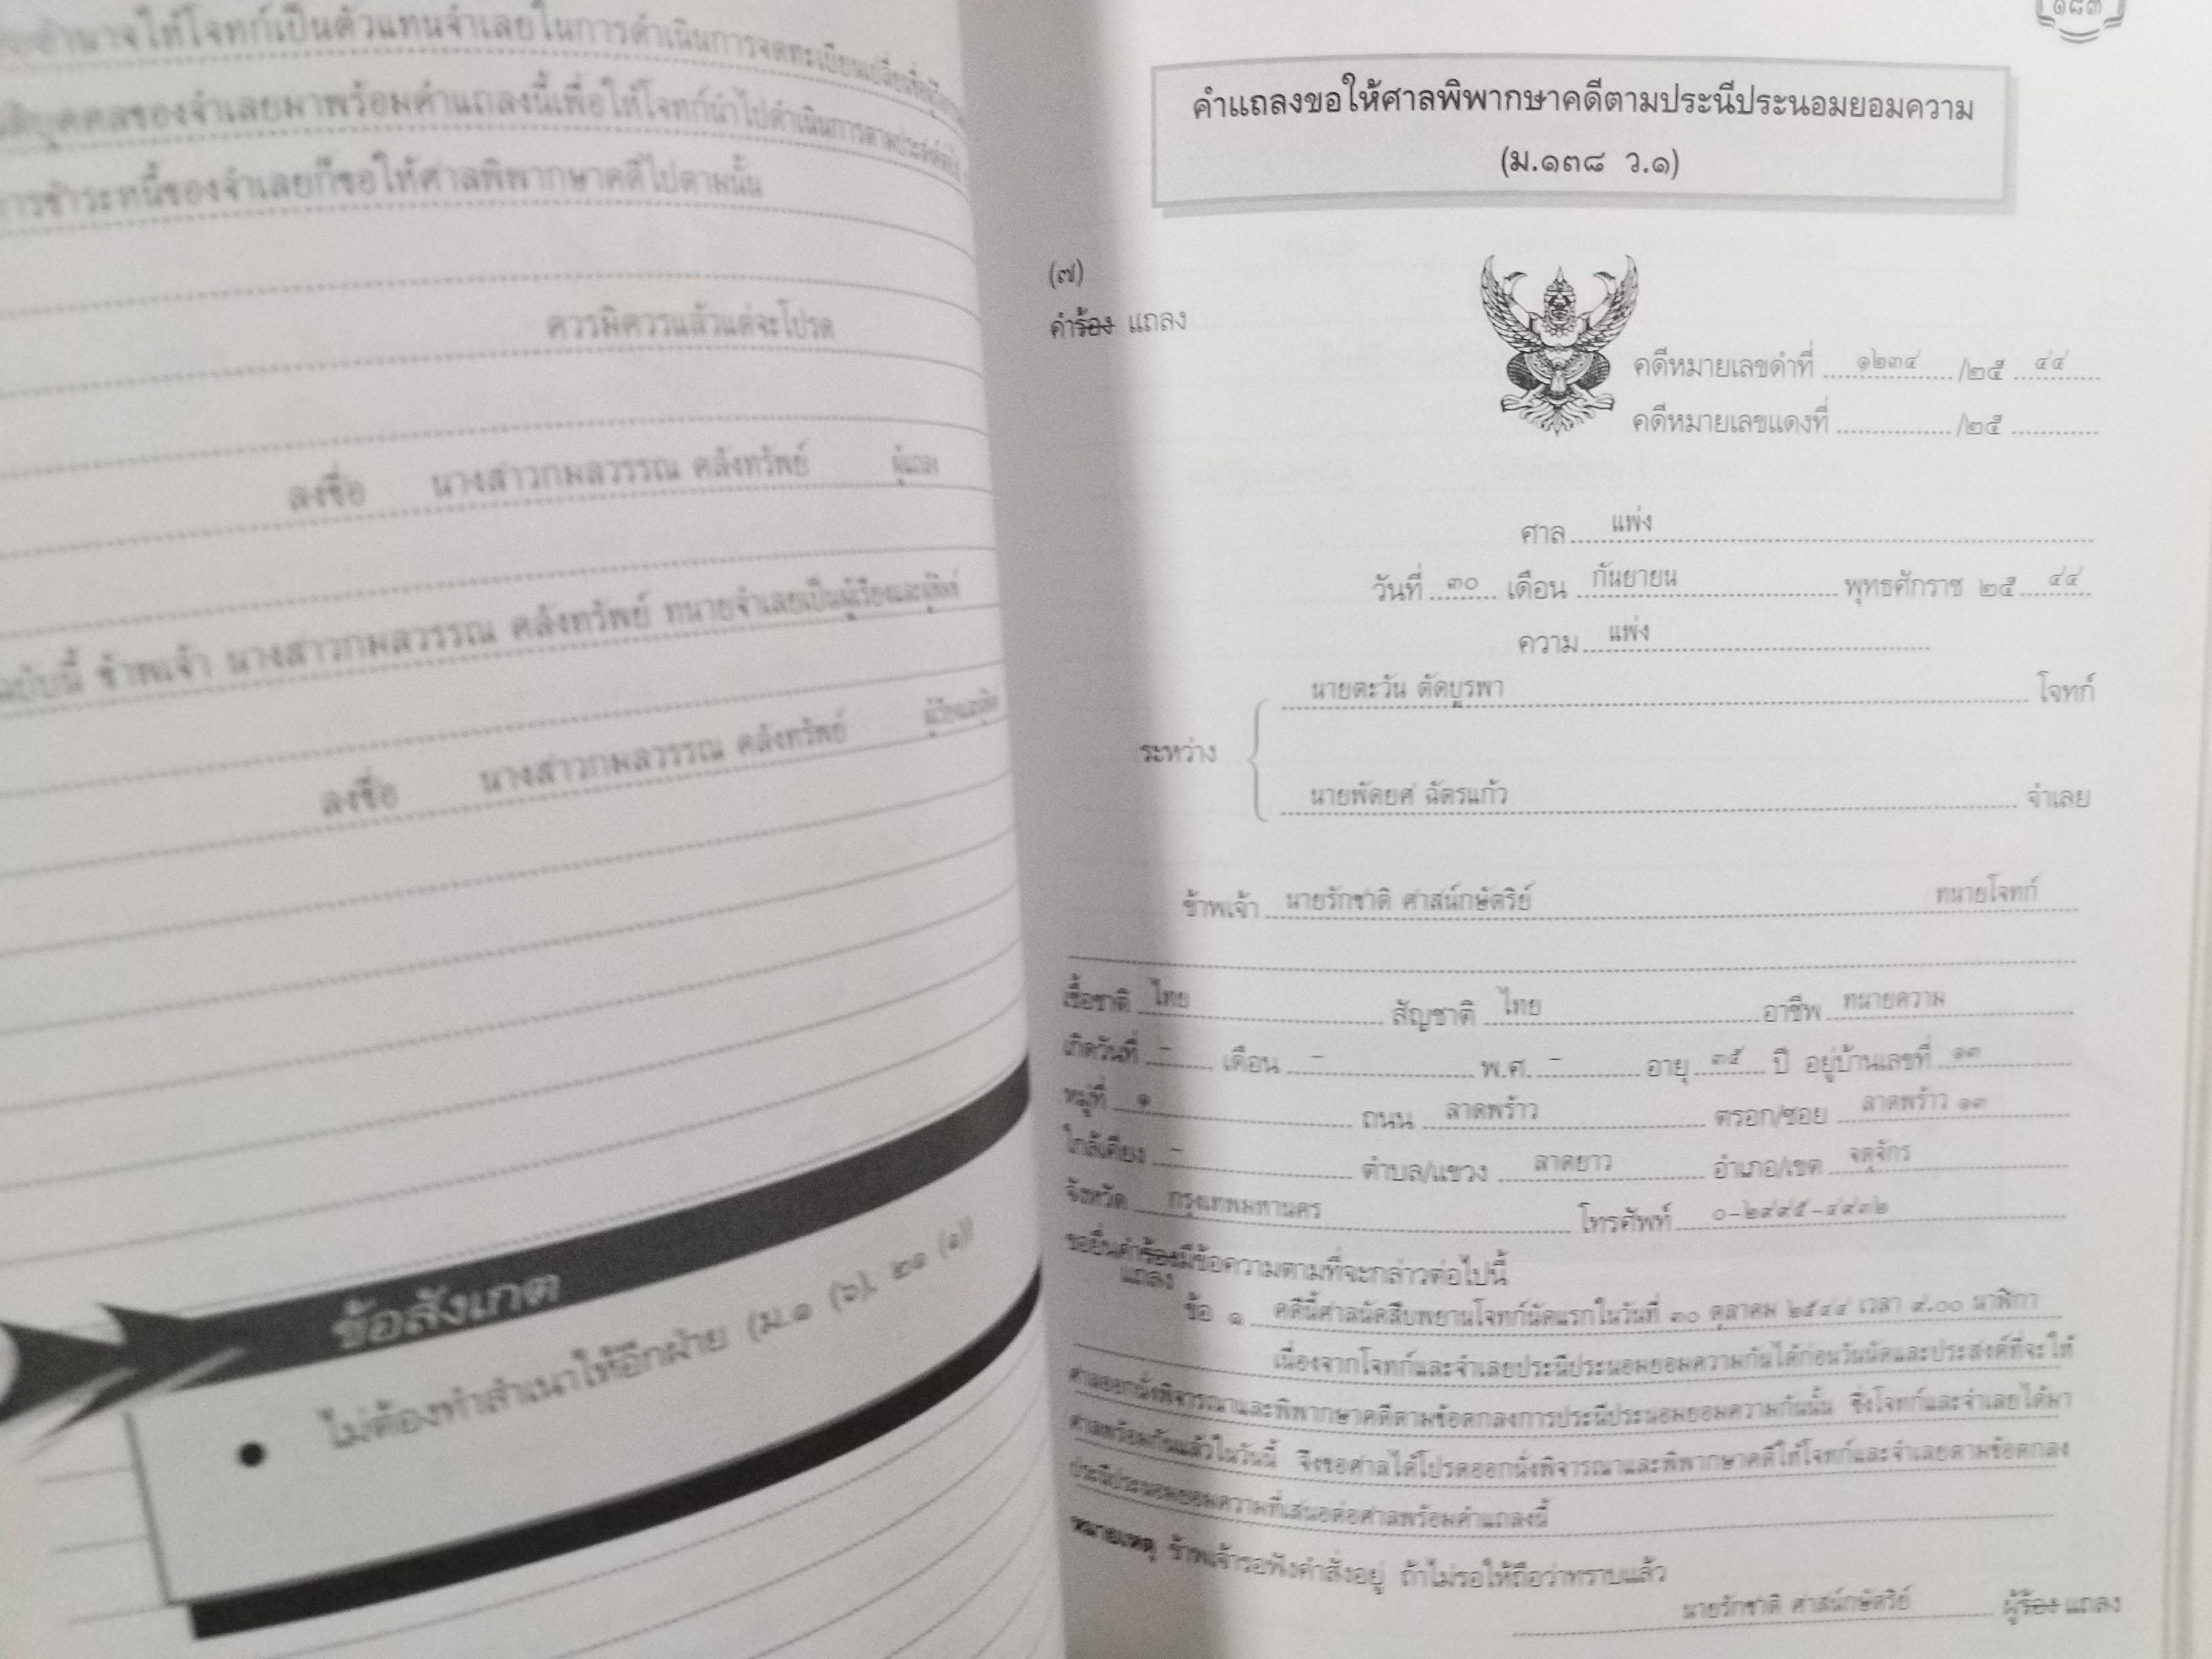 ให้โจทก์เป็นตัวแทนจำเลยในการดำเนินการจดทะเบียน
บุคคลของจำเลยมาพร้อมคำแถลงนี้เพื่อให้โจทก์นำไปดำเนินการตามประสงค์
การชำระหนี้ของจำเลยก็ขอให้ศาลพิพากษาคดีไปตามนั้น
ควรมิควรแล้วแต่จะโปรด
ลงชื่อ นางสาวกมลวรรณ คลังทรัพย์ ผู้แถลง
ฉบับนี้ ข้าพเจ้า นางสาวกมลวรรณ คลังทรัพย์ ทนายจำเลยเป็นผู้เรียงและพิมพ์
ลงชื่อ นางสาวกมลวรรณ คลังทรัพย์ ผู้เรียงและพิมพ์
ข้อสังเกต
● ไม่ต้องทำสำเนาให้อีกฝ่าย (ม.๑ (๖), ๒๑ (๑))
๑๘๓
คำแถลงขอให้ศาลพิพากษาคดีตามประนีประนอมยอมความ
(ม.๑๓๘ ว.๑)
(๗)
คำร้อง แถลง
คดีหมายเลขดำที่ ๑๒๓๔ /๒๕ ๔๔
คดีหมายเลขแดงที่ /๒๕
ศาล แพ่ง
วันที่ ๓๐ เดือน กันยายน พุทธศักราช ๒๕ ๔๔
ความ แพ่ง
นายตะวัน ตัดบูรพา โจทก์
ระหว่าง
นายพัดยศ ฉัตรแก้ว จำเลย
ข้าพเจ้า นายรักชาติ ศาสน์กษัตริย์ ทนายโจทก์
เชื้อชาติ ไทย สัญชาติ ไทย อาชีพ ทนายความ
เกิดวันที่ - เดือน - พ.ศ. - อายุ ๓๕ ปี อยู่บ้านเลขที่ ๑๓
หมู่ที่ ๑ ถนน ลาดพร้าว ตรอก/ซอย ลาดพร้าว ๑๓
ใกล้เคียง - ตำบล/แขวง ลาดยาว อำเภอ/เขต จตุจักร
จังหวัด กรุงเทพมหานคร โทรศัพท์ ๐-๒๙๙๕-๔๙๓๒
ขอยื่นคำร้องมีข้อความตามที่จะกล่าวต่อไปนี้
แถลง
ข้อ ๑ คดีนี้ศาลนัดสืบพยานโจทก์นัดแรกในวันที่ ๓๐ ตุลาคม ๒๕๔๔ เวลา ๙.๐๐ นาฬิกา
เนื่องจากโจทก์และจำเลยประนีประนอมยอมความกันได้ก่อนวันนัดและประสงค์ที่จะให้
ศาลออกนั่งพิจารณาและพิพากษาคดีตามข้อตกลงการประนีประนอมยอมความกันนั้น ซึ่งโจทก์และจำเลยได้มา
ศาลพร้อมกันแล้วในวันนี้ จึงขอศาลได้โปรดออกนั่งพิจารณาและพิพากษาคดีให้โจทก์และจำเลยตามข้อตกลง
ประนีประนอมยอมความที่เสนอต่อศาลพร้อมคำแถลงนี้
หมายเหตุ ข้าพเจ้ารอฟังคำสั่งอยู่ ถ้าไม่รอให้ถือว่าทราบแล้ว
นายรักชาติ ศาสน์กษัตริย์ ผู้ร้อง แถลง